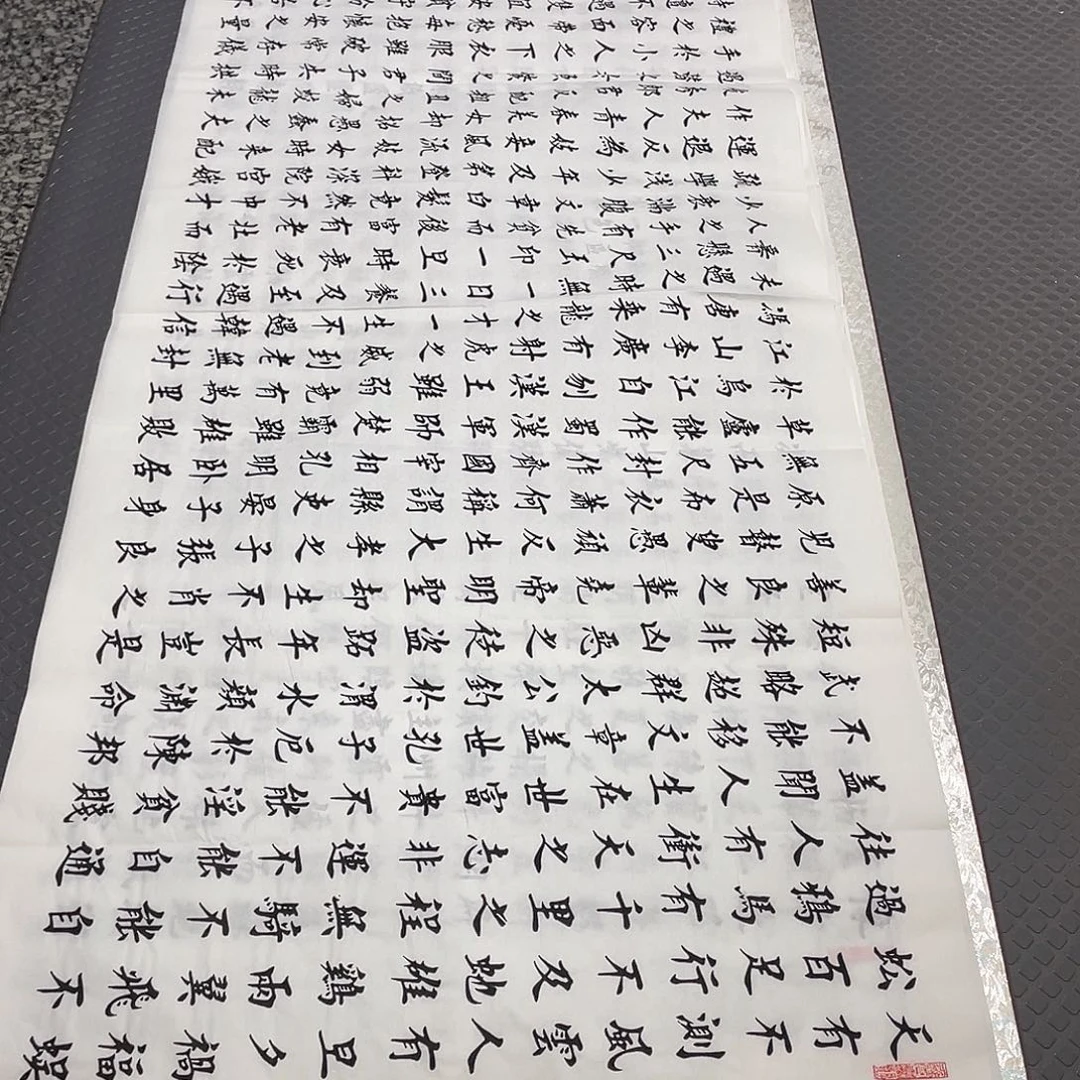 天有不測風雲人有旦夕禍福蜈
蚣百足行不及蛇雄鷄兩翼飛不
過鴉馬有千里之程無騎不能自
往人有衝天之志非運不能自通
盖聞人生在世富貴不能淫貧賤
不能移文章盖世孔子厄於陳邦
武略超群太公釣於渭水顏淵命
短殊非凶惡之徒盜跖年長豈是
善良之輩堯帝明聖却生不肖之
児瞽叟愚頑反生大孝之子張良
原是布衣蕭何稱謂縣吏晏子身
無五尺封作齊國宰相孔明卧居
草盧能作蜀漢軍師楚霸雖雄敗
於烏江自刎漢王雖弱竟有萬里
江山李廣有射虎之威到老無封
馮唐有乘龍之才一生不遇韓信
未遇之時無一日三餐及至遇行
懸三尺玉印一旦時衰死於陰
人之手有先貧而後富有老壯而
少衰滿腹文章白髮竟然不中才
疏學淺少年及第登科深院宮娥
運退反為妓妾風流妓女時來配
作夫人青春美女却招愚蠢之夫
手於小人之下衣服雖破常存儀
禮之容面帶憂愁每抱懷安之量